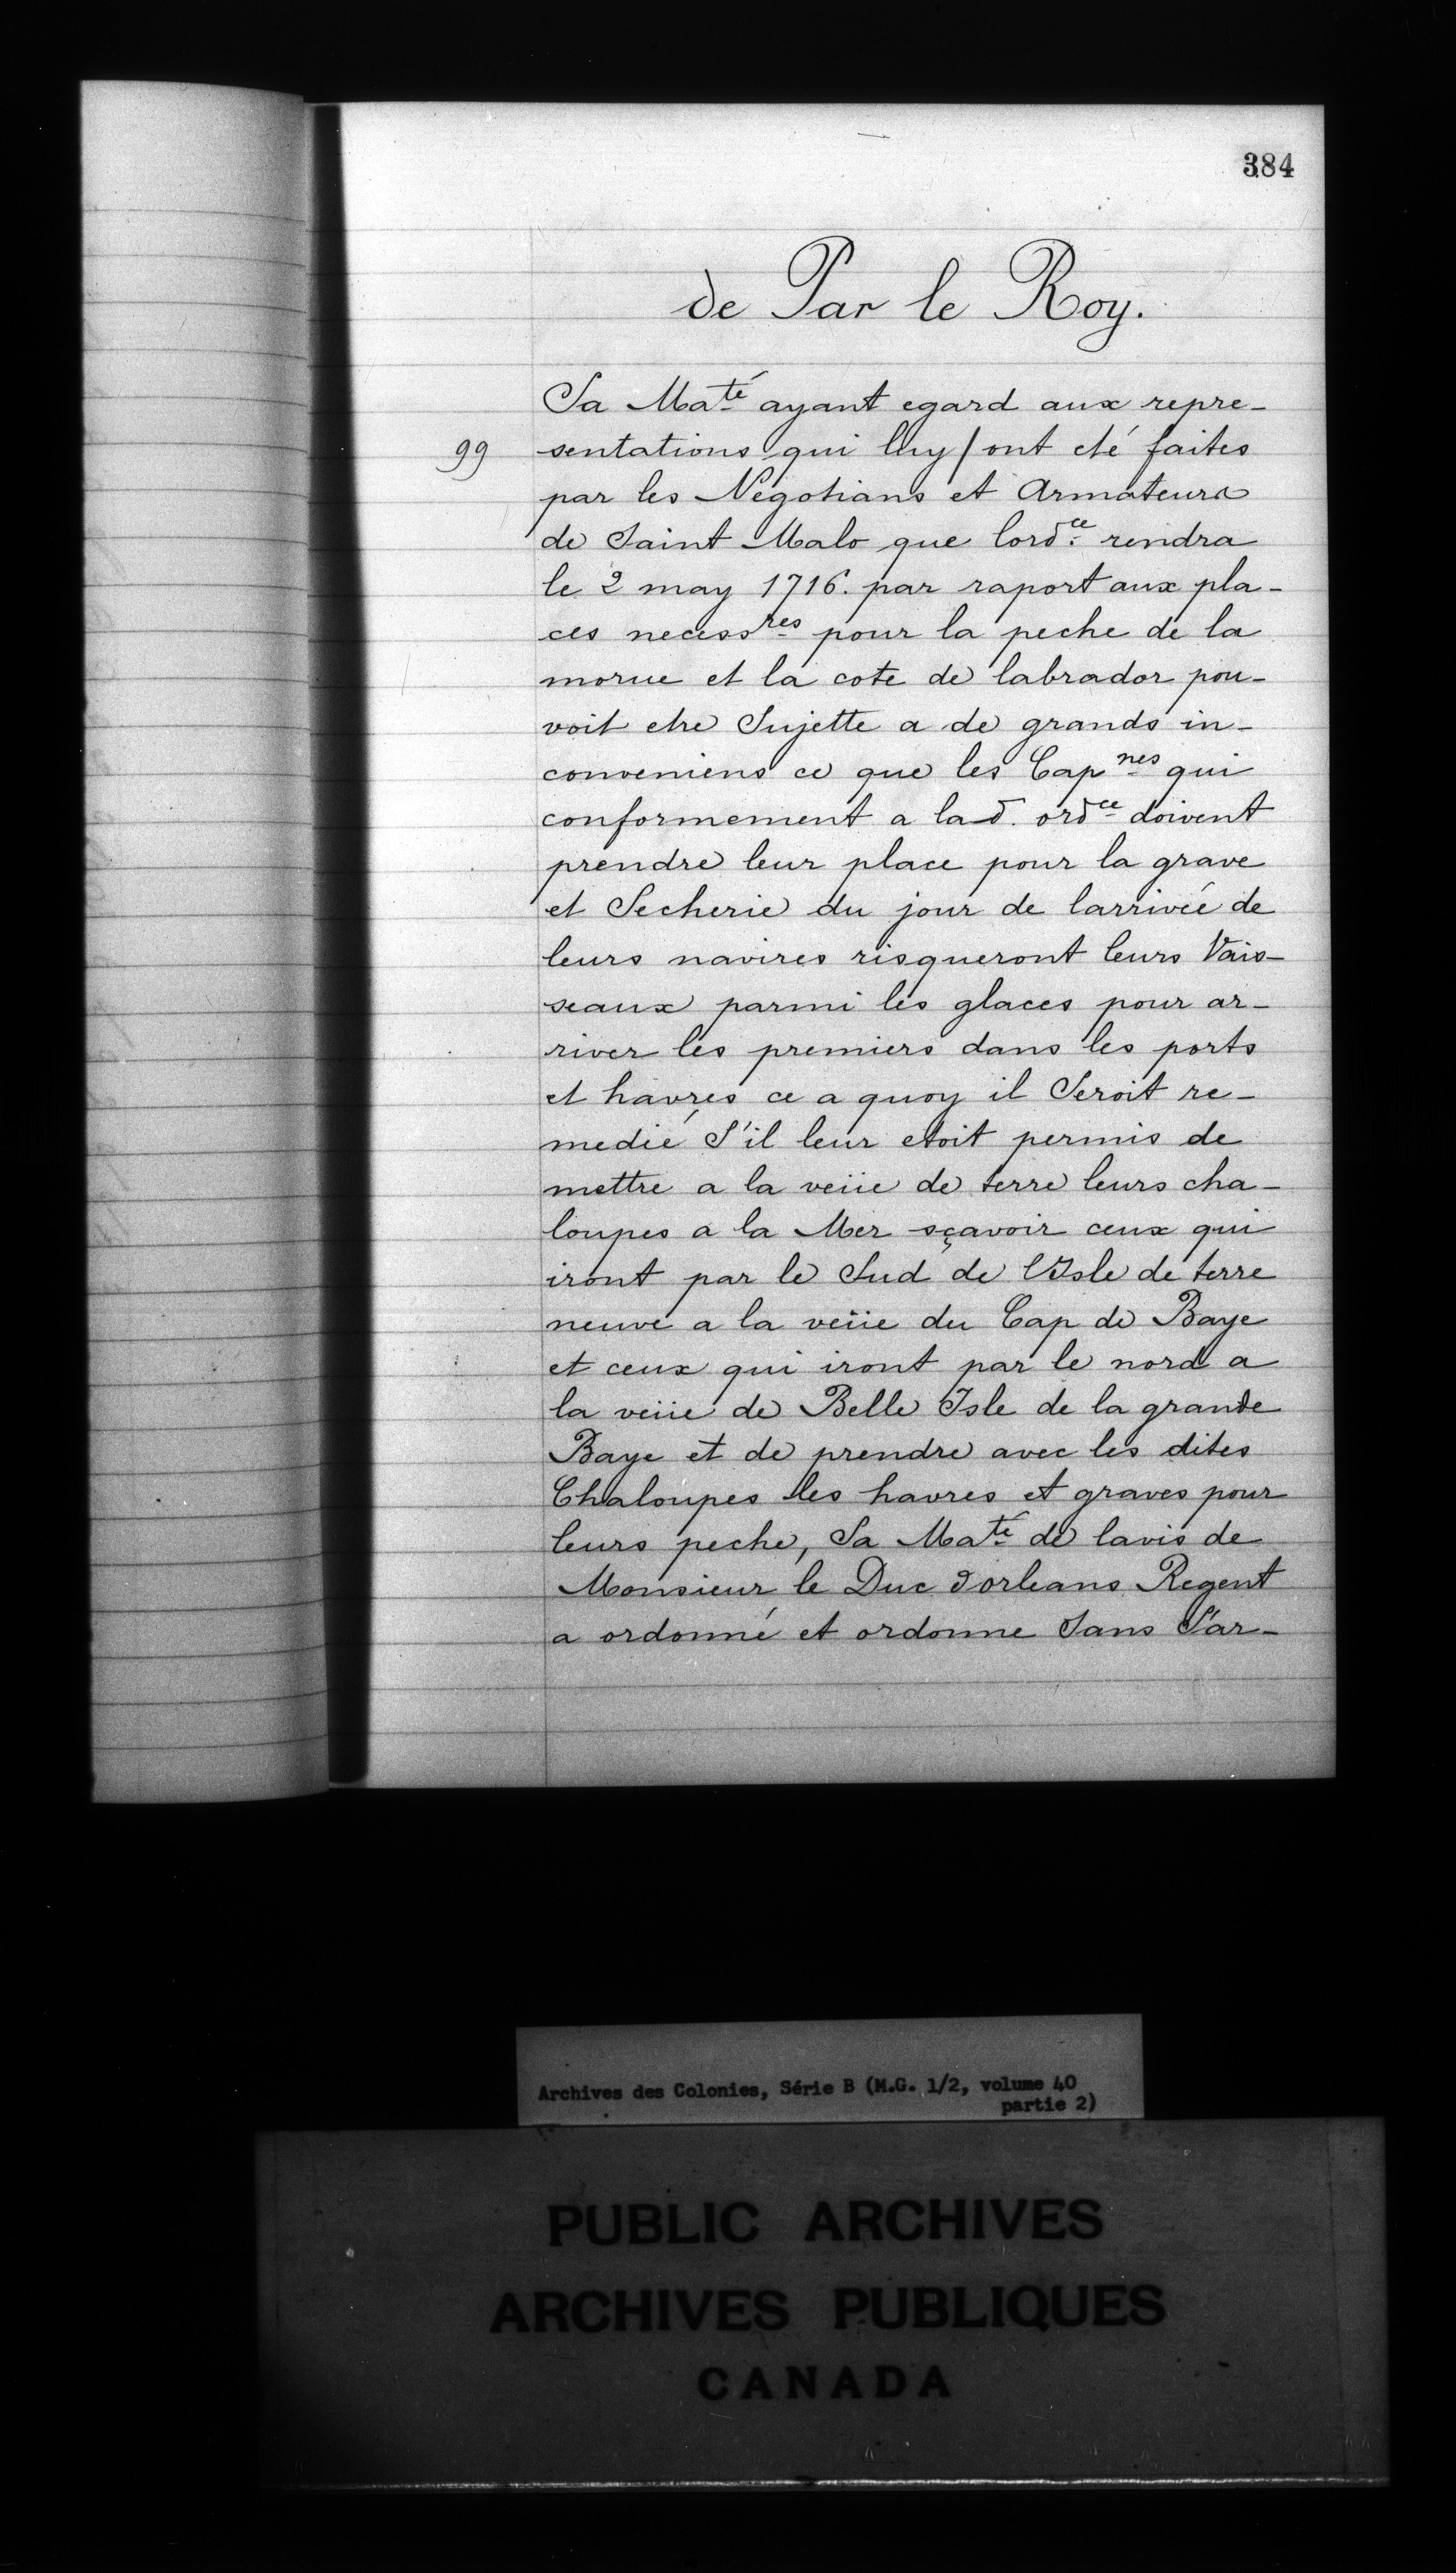 384
de Par le Roy.
Sa Maté ayant egard aux repre-
99 sentations qui luy / ont eté faites
par les Negotians et Armateurs
de Saint Malo que lordce rendra
le 2 may 1716. par raport aux pla-
ces necessres pour la peche de la
morue et la cote de labrador pou-
voit etre Sujette a de grands in-
conveniens ce que les Capnes qui
conformement a lad. ordce doivent
prendre leur place pour la grave
et Secherie du jour de larrivée de
leurs navires risqueront leurs Vais-
seaux parmi les glaces pour ar-
river les premiers dans les ports
et havres ce a quoy il Seroit re-
medié S'il leur etoit permis de
mettre a la veüe de terre leurs cha-
loupes a la Mer sçavoir ceux qui
iront par le Sud de l'Isle de terre
neuve a la veüe du Cap de Baye
et ceux qui iront par le nord a
la veüe de Belle Isle de la grande
Baye et de prendre avec les dites
Chaloupes les havres et graves pour
leurs peche, Sa Maté de lavis de
Monsieur le Duc dorleans Regent
a ordonné et ordonne Sans S'ar-
Archives des Colonies, Série B (M.G. 1/2, volume 40
partie 2)
PUBLIC ARCHIVES
ARCHIVES PUBLIQUES
CANADA